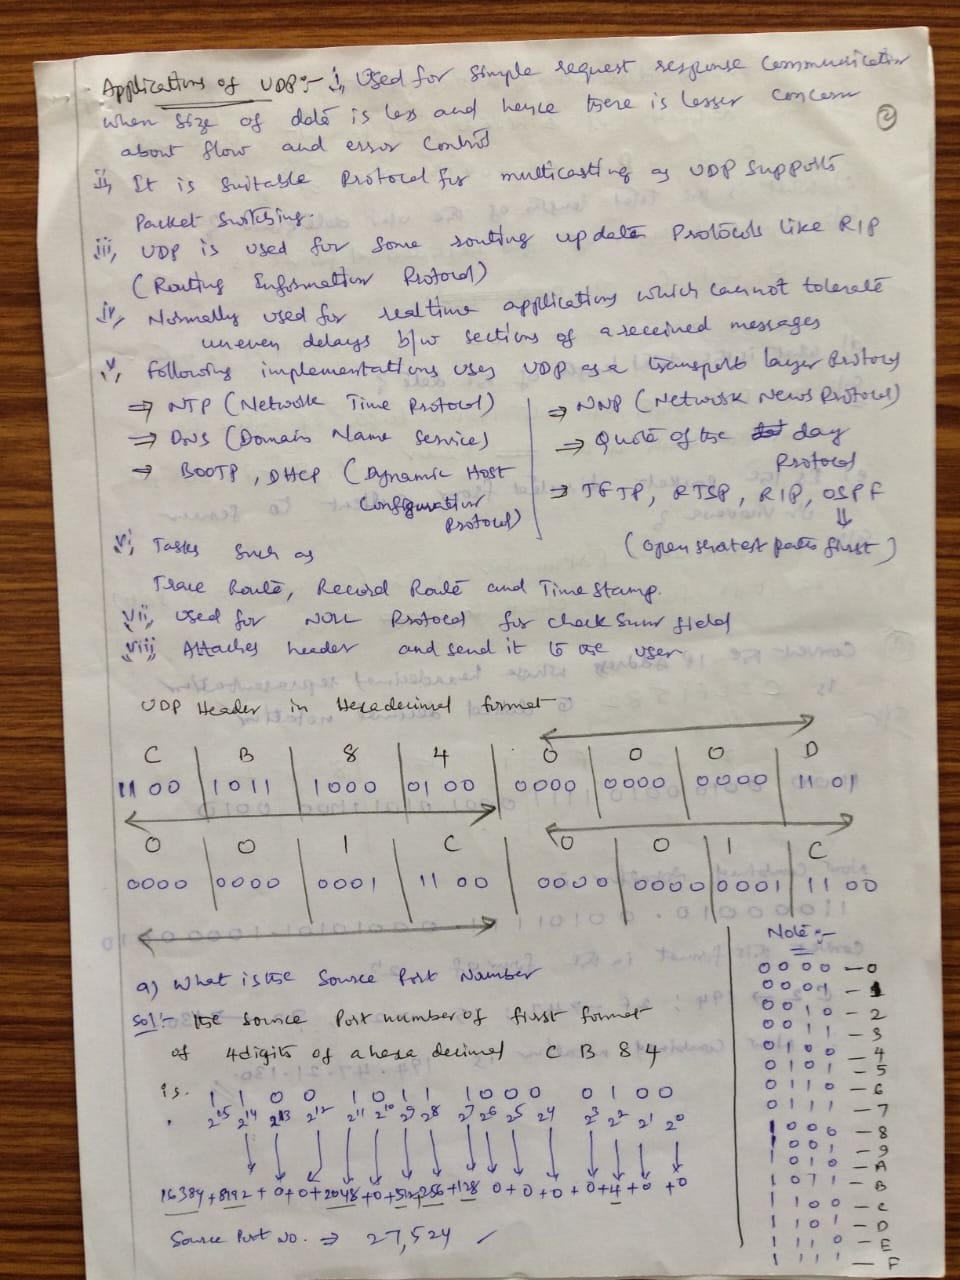 Applications of UDP:- i, Used for simple request response communication
when size of data is less and hence there is lesser concern
②
about flow and error control
ii, It is suitable Protocol for multicasting as UDP supports
Packet switching.
iii, UDP is used for some routing update Protocols like RIP
(Routing Information Protocol)
iv, Normally used for realtime applications which cannot tolerate
uneven delays b/w sections of a received messages
v, following implementations uses UDP as a transport layer Protocol
⇒ NTP (Network Time Protocol)
⇒ DNS (Domain Name Service)
⇒ BOOTP, DHCP (Dynamic Host
Configuration
Protocol)
⇒ NNP (Network News Protocol)
⇒ Quote of the day
Protocol
⇒ TFTP, RTSP, RIP, OSPF
⇓
(open shortest path first)
vi, Tasks such as
Trace Route, Record Route and Time stamp.
vii, used for NULL Protocol for check sum field
viii, Attaches header and send it to the user
UDP Header in Hexadecimal format
C B 8 4 0 0 0 D
1100 1011 1000 0100 0000 0000 0000 1101
0 0 1 C 0 0 1 C
0000 0000 0001 1100 0000 0000 0001 1100
a) What is the Source Port Number
Sol:- the source Port number of first format
of 4digits of a hexa decimal C B 8 4
is. 1 1 0 0 1 0 1 1 1 0 0 0 0 1 0 0
2^15 2^14 2^13 2^12 2^11 2^10 2^9 2^8 2^7 2^6 2^5 2^4 2^3 2^2 2^1 2^0
16384 + 8192 + 0 + 0 + 2048 + 0 + 512 + 256 + 128 0 + 0 + 0 + 0 + 4 + 0 + 0
Source Port No. ⇒ 27,524 ✓
Note:-
0 0 0 0 - 0
0 0 0 1 - 1
0 0 1 0 - 2
0 0 1 1 - 3
0 1 0 0 - 4
0 1 0 1 - 5
0 1 1 0 - 6
0 1 1 1 - 7
1 0 0 0 - 8
1 0 0 1 - 9
1 0 1 0 - A
1 0 1 1 - B
1 1 0 0 - C
1 1 0 1 - D
1 1 1 0 - E
1 1 1 1 - F